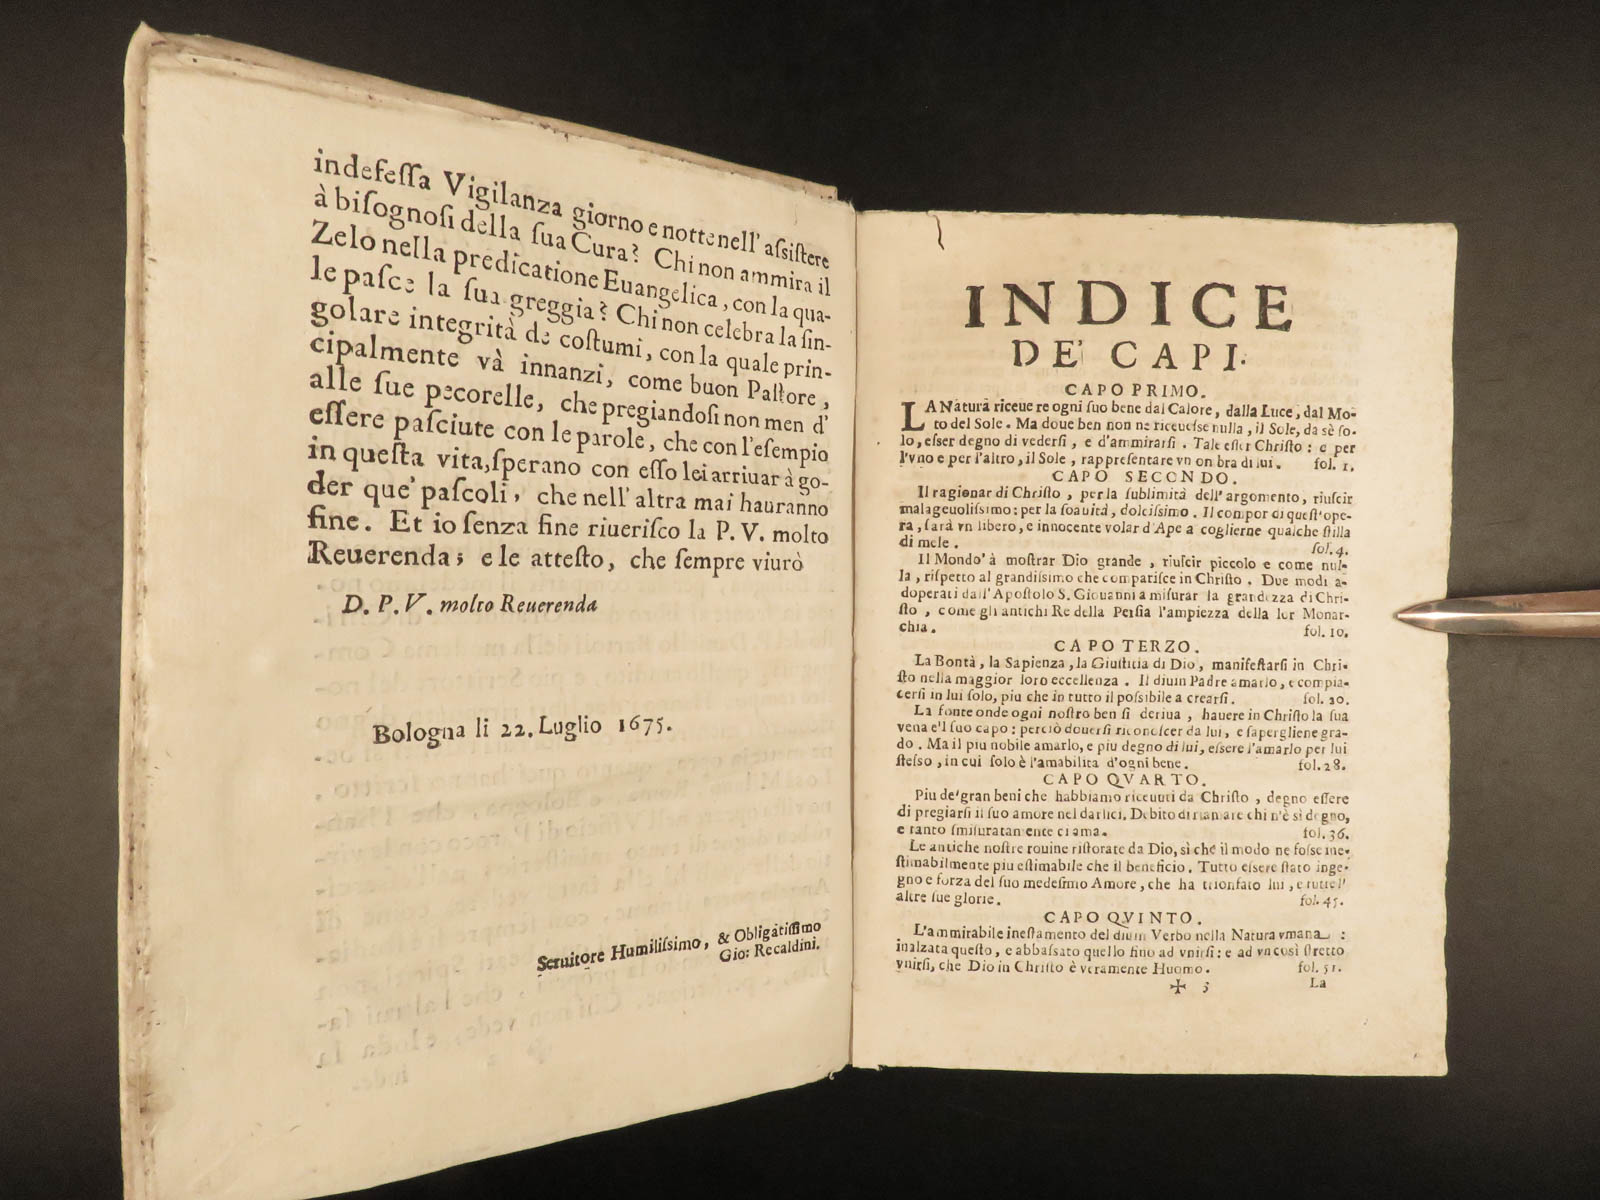 indefeſſa Vigilanza giorno e notte nell' aſsiſtere
à biſognoſi della ſua Cura? Chi non ammira il
Zelo nella predicatione Euangelica, con la qua-
le paſce la ſua greggia? Chi non celebra la ſin-
golare integrità de coſtumi, con la quale prin-
cipalmente và innanzi, come buon Paſtore,
alle ſue pecorelle, che pregiandoſi non men d'
eſſere paſciute con le parole, che con l'eſempio
in queſta vita, ſperano con eſſo lei arriuar à go-
der que' paſcoli, che nell' altra mai hauranno
fine. Et io ſenza fine riueriſco la P. V. molto
Reuerenda; e le atteſto, che ſempre viurò
D. P. V. molto Reuerenda
Bologna li 22. Luglio 1675.
Seruitore Humiliſsimo, & Obligatiſſimo
Gio: Recaldini.
INDICE
DE' CAPI.
CAPO PRIMO.
LA Natura riceuere ogni ſuo bene dal Calore, dalla Luce, dal Mo-
to del Sole. Ma doue ben non ne riceueſse nulla, il Sole, da sè ſo-
lo, eſser degno di vederſi, e d'ammirarſi. Tale eſser Chriſto: e per
l'vno e per l'altro, il Sole, rappreſentare vn ombra di lui. fol. 1.
CAPO SECONDO.
Il ragionar di Chriſto, per la ſublimità dell' argomento, riuſcir
malageuoliſsimo: per la ſoauità, dolciſsimo. Il compor di queſt'ope-
ra, ſarà vn libero, e innocente volar d'Ape a coglierne qualche ſtilla
di mele. fol. 4.
Il Mondo' à moſtrar Dio grande, riuſcir piccolo e come nul-
la, riſpetto al grandiſsimo che compariſce in Chriſto. Due modi a-
doperati dall'Apoſtolo S. Giouanni a miſurar la grandezza di Chri-
ſto, come gli antichi Re della Perſia l'ampiezza della lor Monar-
chia. fol. 10.
CAPO TERZO.
La Bontà, la Sapienza, la Giuſtitia di Dio, manifeſtarſi in Chri-
ſto nella maggior loro eccellenza. Il diuin Padre amarlo, e compia-
cerſi in lui ſolo, piu che in tutto il poſsibile a crearſi. fol. 20.
La fonte onde ogni noſtro ben ſi deriua, hauere in Chriſto la ſua
vena e'l ſuo capo: perciò douerſi riconoſcer da lui, e ſapergliene gra-
do. Ma il piu nobile amarlo, e piu degno di lui, eſsere l'amarlo per lui
ſteſso, in cui ſolo è l'amabilità d'ogni bene. fol. 28.
CAPO QVARTO.
Piu de'gran beni che habbiamo riceuuti da Chriſto, degno eſſere
di pregiarſi il ſuo amore nel darlici. Debito di riamare chi n'è sì degno,
e tanto ſmiſuratamente ci ama. fol. 36.
Le antiche noſtre rouine riſtorate da Dio, sì che il modo ne foſse ine-
ſtimabilmente piu eſtimabile che il beneficio. Tutto eſsere ſtato inge-
gno e forza del ſuo medeſimo Amore, che ha trionfato lui, e tutte l'
altre ſue glorie. fol. 45.
CAPO QVINTO.
L'ammirabile ineſtamento del diuin Verbo nella Natura vmana:
inalzata queſto, e abbaſsato quello fino ad vnirſi: e ad vn così ſtretto
vnirſi, che Dio in Chriſto è veramente Huomo. fol. 51.
✠ 3 La